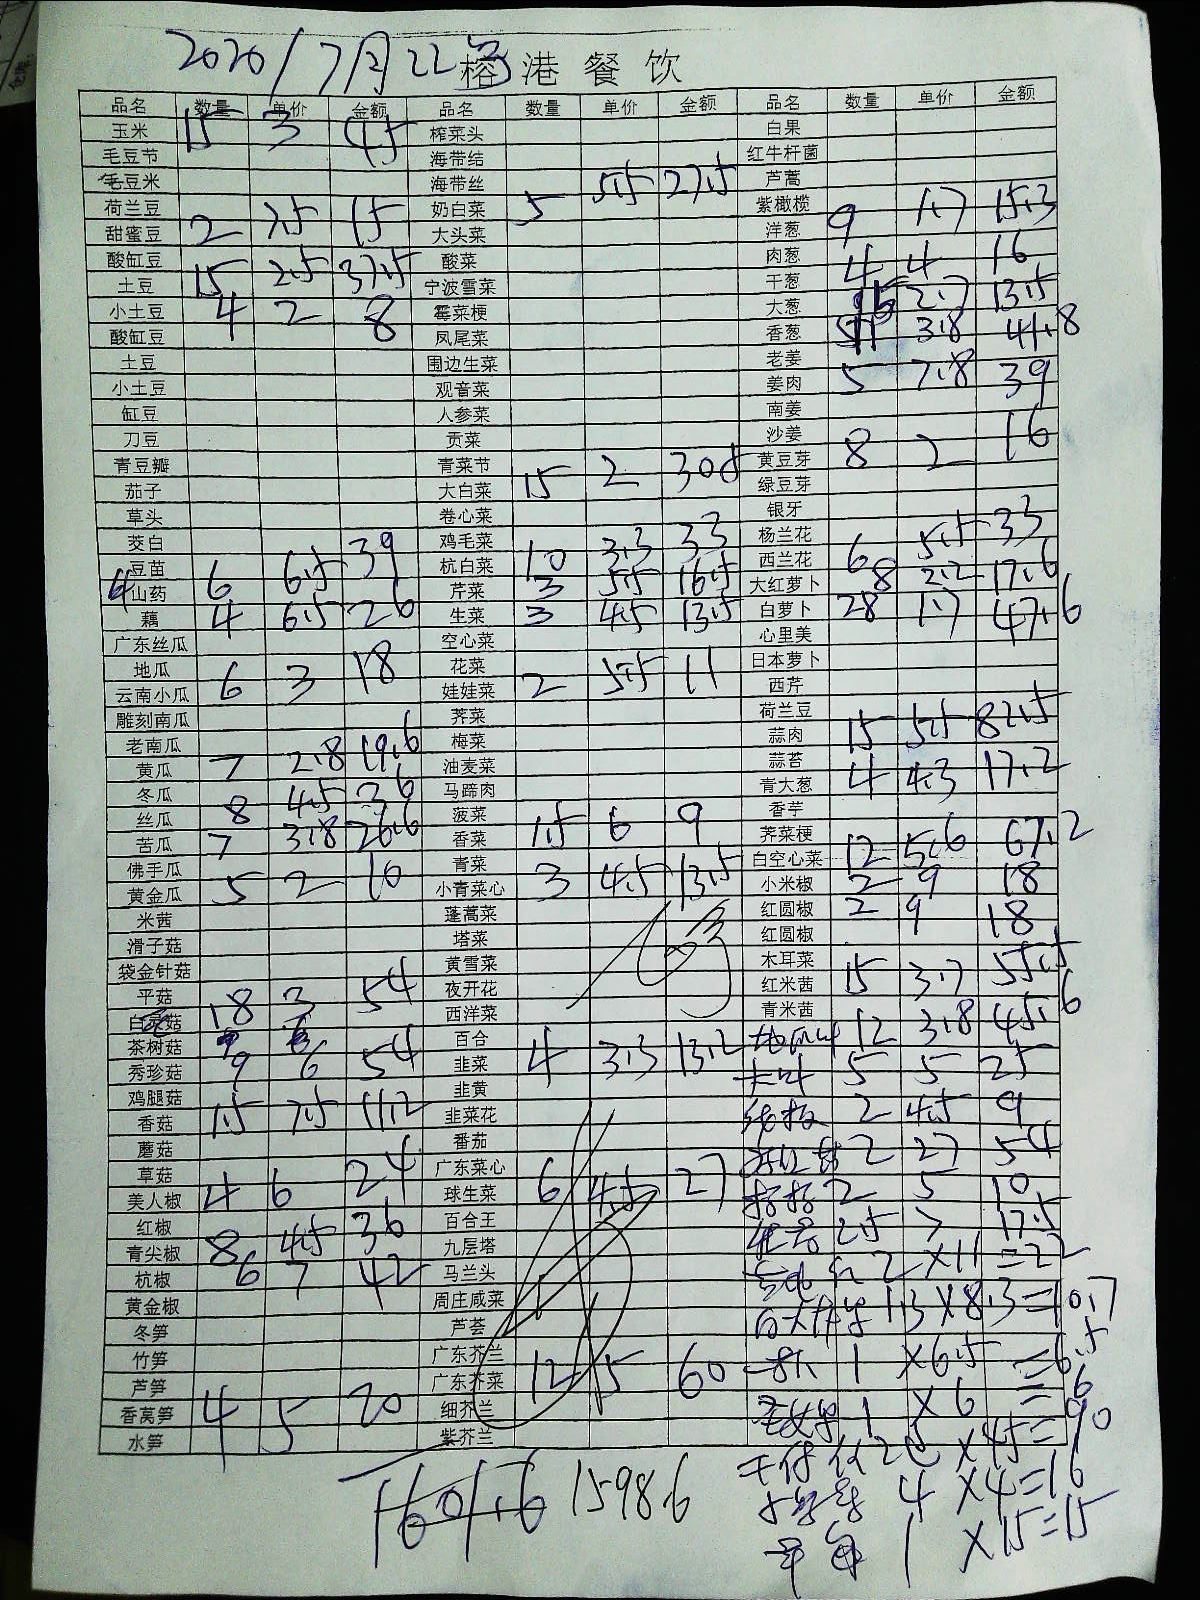 2020/7月22号
榕港餐饮
品名 数量 单价 金额 品名 数量 单价 金额 品名 数量 单价 金额
玉米 15 3 45 榨菜头 白果
毛豆节 海带结 红牛杆菌
毛豆米 海带丝 5 5.5 27.5 芦蒿
荷兰豆 2 7.5 15 奶白菜 紫橄榄 9 1.7 15.3
甜蜜豆 大头菜 洋葱
酸缸豆 15 2.5 37.5 酸菜 肉葱 4 4 16
土豆 宁波雪菜 干葱
小土豆 4 2 8 霉菜梗 大葱 15 2.7 13.5
酸缸豆 凤尾菜 香葱 11 3.8 41.8
土豆 围边生菜 老姜
小土豆 观音菜 姜肉 5 7.8 39
缸豆 人参菜 南姜
刀豆 贡菜 沙姜
青豆瓣 青菜节 黄豆芽 8 2 16
茄子 大白菜 15 2 30 绿豆芽
草头 卷心菜 银牙
茭白 鸡毛菜 杨兰花
豆苗 6 6.5 39 杭白菜 10 3.3 33 西兰花 6 5.5 33
山药 芹菜 3 5.5 16.5 大红萝卜 8 2.2 17.6
藕 4 6.5 26 生菜 3 4.5 13.5 白萝卜 28 1.7 47.6
广东丝瓜 空心菜 心里美
地瓜 6 3 18 花菜 日本萝卜
云南小瓜 娃娃菜 2 5.5 11 西芹
雕刻南瓜 荠菜 荷兰豆
老南瓜 梅菜 蒜肉 15 5.5 82.5
黄瓜 7 2.8 19.6 油麦菜 蒜苔
冬瓜 8 4.5 36 马蹄肉 青大葱 4 4.3 17.2
丝瓜 菠菜 香芋
苦瓜 7 3.8 26.6 香菜 1.5 6 9 荠菜梗
佛手瓜 青菜 白空心菜 12 5.6 67.2
黄金瓜 5 2 10 小青菜心 3 4.5 13.5 小米椒 2 9 18
米茜 蓬蒿菜 红圆椒 2 9 18
滑子菇 塔菜 红圆椒
袋金针菇 黄雪菜 木耳菜
平菇 夜开花 红米茜 15 3.7 55.5
白灵菇 18 3 54 西洋菜 青米茜
茶树菇 百合 12 3.8 45.6
秀珍菇 9 6 54 韭菜 4 3.3 13.2 5 5 25
鸡腿菇 韭黄
香菇 1.5 7.5 11.2 韭菜花 2 4.5 9
蘑菇 番茄
草菇 广东菜心 2 27 54
美人椒 4 6 24 球生菜 6 4.5 27 2 5 10
红椒 百合王
青尖椒 8 4.5 36 九层塔 2.5 7 17.5
杭椒 6 7 42 马兰头 2 ×11=22
黄金椒 周庄咸菜 1.3×8.3=10.7
冬笋 芦荟
竹笋 广东芥兰 1 ×6.5=6.5
芦笋 广东芥菜 12 5 60
香莴笋 4 5 20 细芥兰 1 ×6=6
水笋 紫芥兰 2 ×45=90
1601.6 1598.6
4 ×4=16
1 ×15=15